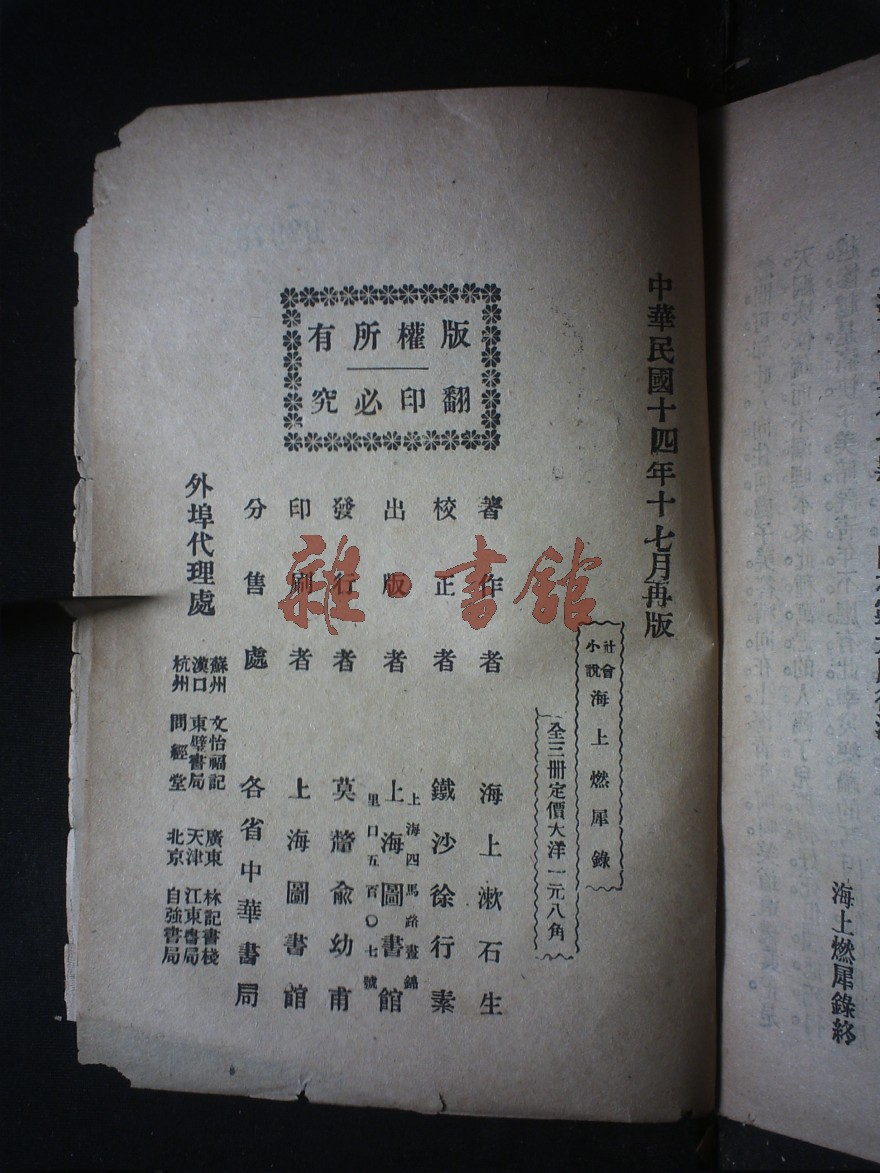 海上燃犀錄終
中華民國十四年十七月再版
社會小說
海上燃犀錄
全三冊定價大洋一元八角
版權所有
翻印必究
著作者 海上漱石生
校正者 鐵沙徐行素
出版者 上海圖書館
上海四馬路晝錦里口五百〇七號
發行者 莫釐俞幼甫
印刷者 上海圖書館
分售處 各省中華書局
外埠代理處
蘇州 文怡福記 廣東 林記書棧
漢口 東璧書局 天津 江東書局
杭州 問經堂 北京 自強書局
雜·書館